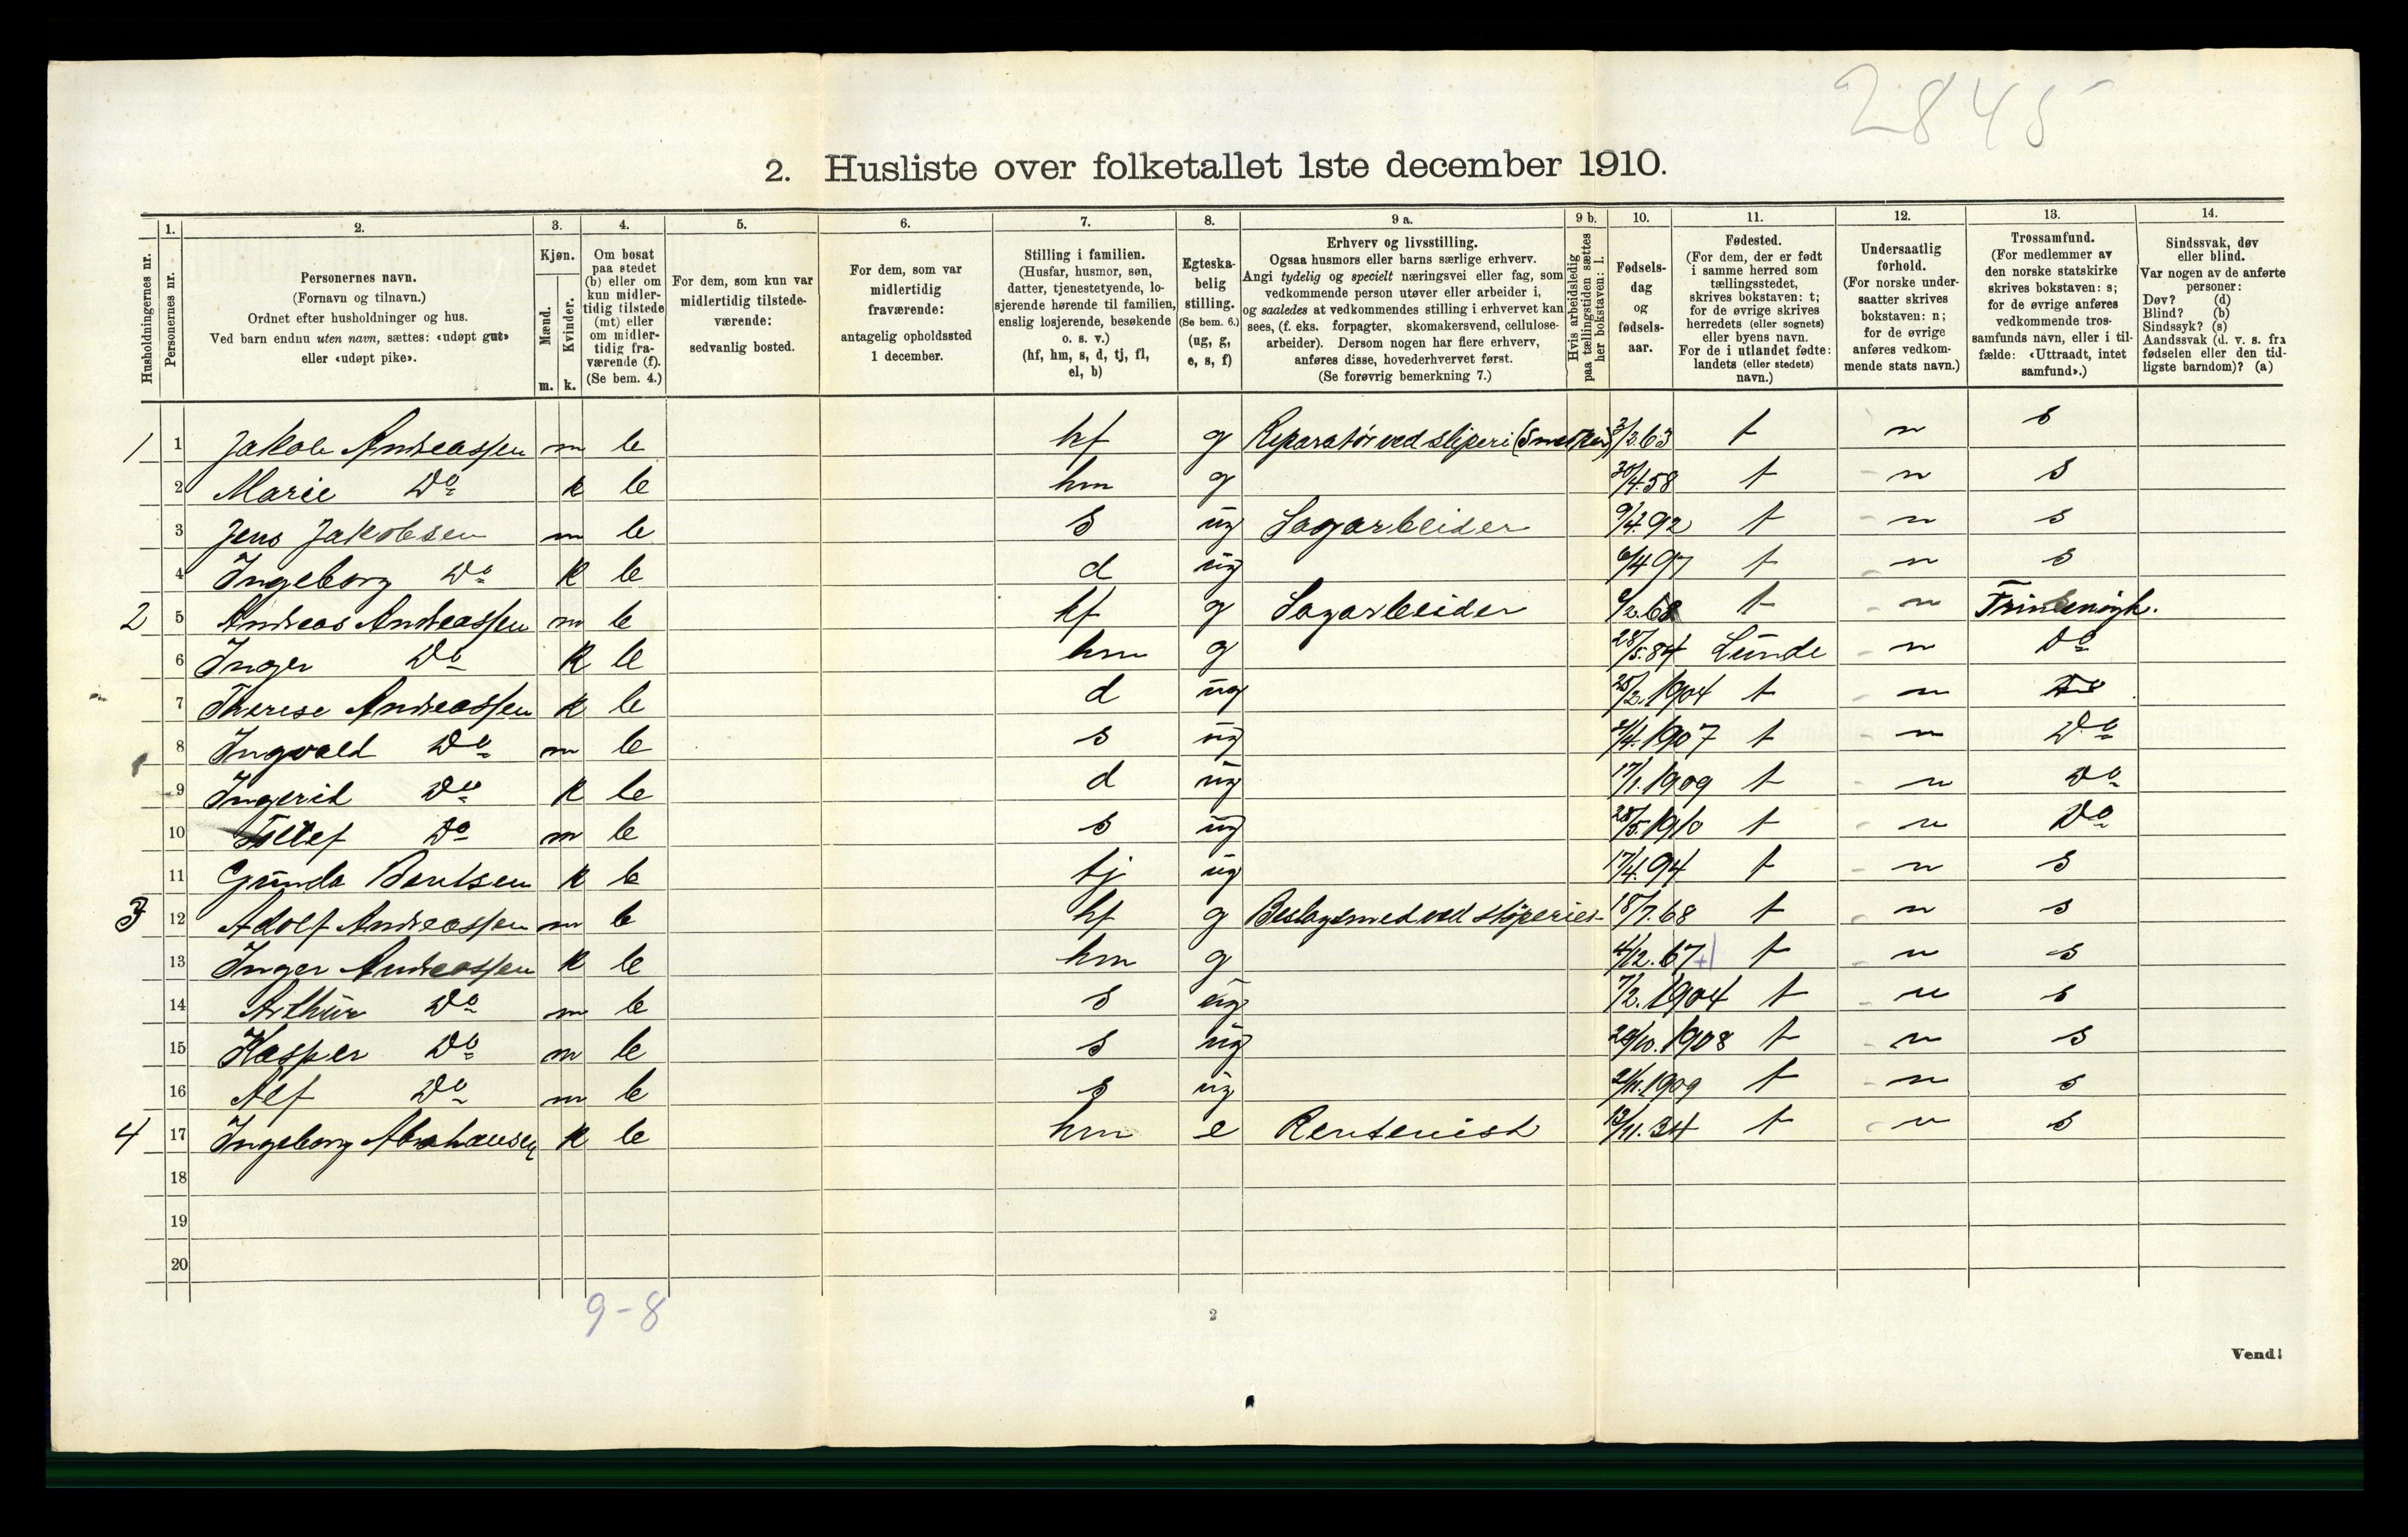 2845
2. Husliste over folketallet 1ste december 1910.
1. 2. 3. 4. 5. 6. 7. 8. 9 a. 9 b. 10. 11. 12. 13. 14.
Husholdningernes nr.
Personernes nr.
Personernes navn.
(Fornavn og tilnavn.)
Ordnet efter husholdninger og hus.
Ved barn endnu uten navn, sættes: «udøpt gut»
eller «udøpt pike».
Kjøn.
Mænd.
m.
Kvinder.
k.
Om bosat
paa stedet
(b) eller om
kun midler-
tidig tilstede
(mt) eller
om midler-
tidig fra-
værende (f).
(Se bem. 4.)
For dem, som kun var
midlertidig tilstede-
værende:
sedvanlig bosted.
For dem, som var
midlertidig
fraværende:
antagelig opholdssted
1 december.
Stilling i familien.
(Husfar, husmor, søn,
datter, tjenestetyende, lo-
sjerende hørende til familien,
enslig losjerende, besøkende
o. s. v.)
(hf, hm, s, d, tj, fl,
el, b)
Egteska-
belig
stilling.
(Se bem. 6.)
(ug, g,
e, s, f)
Erhverv og livsstilling.
Ogsaa husmors eller barns særlige erhverv.
Angi tydelig og specielt næringsvei eller fag, som
vedkommende person utøver eller arbeider i,
og saaledes at vedkommendes stilling i erhvervet kan
sees, (f. eks. forpagter, skomakersvend, cellulose-
arbeider). Dersom nogen har flere erhverv,
anføres disse, hovederhvervet først.
(Se forøvrig bemerkning 7.)
Hvis arbeidsledig
paa tællingstiden sættes
her bokstaven: l.
Fødsels-
dag
og
fødsels-
aar.
Fødested.
(For dem, der er født
i samme herred som
tællingsstedet,
skrives bokstaven: t;
for de øvrige skrives
herredets (eller sognets)
eller byens navn.
For de i utlandet fødte:
landets (eller stedets)
navn.)
Undersaatlig
forhold.
(For norske under-
saatter skrives
bokstaven: n;
for de øvrige
anføres vedkom-
mende stats navn.)
Trossamfund.
(For medlemmer av
den norske statskirke
skrives bokstaven: s;
for de øvrige anføres
vedkommende tros-
samfunds navn, eller i til-
fælde: «Uttraadt, intet
samfund».)
Sindssvak, døv
eller blind.
Var nogen av de anførte
personer:
Døv? (d)
Blind? (b)
Sindssyk? (s)
Aandssvak (d. v. s. fra
fødselen eller den tid-
ligste barndom)? (a)
1 1 Jakob Andreassen m b hf g Reparatør ved sliperi 3/3.63 t n s
2 Marie Do k b hm g 30/4.58 t n s
3 Jens Jakobsen m b s ug Sagarbeider 9/4.92 t n s
4 Ingeborg Do k b d ug 6/4 97 t n s
2 5 Andreas Andreassen m b hf g Sagarbeider t n
6 Inger Do k b hm g 28/5.84 Lunde n Do
7 Therese Andreassen k b d ug 25/2.1904 t n Do
8 Ingvald Do m b s ug 1907 t n Do
9 Ingerid Do k b d ug 17/1.1909 t n Do
10 Do m b s ug 28/5.1910 t n Do
11 Gunda Bentsen k b tj ug 17/4.94 t n s
3 12 Adolf Andreassen m b hf g Beslagsmed ved sliperiet 18/7.68 t n s
13 Inger Andreassen k b hm g 4/12.67 t n s
14 Arthur Do m b s ug 7/2.1904 t n s
15 Kasper Do m b s ug 1908 t n s
16 Alf Do m b s ug 1909 t n s
4 17 Ingeborg k b hm e Rentenist 13/11.34 t n s
18
19
20
9-8
2
Vend!